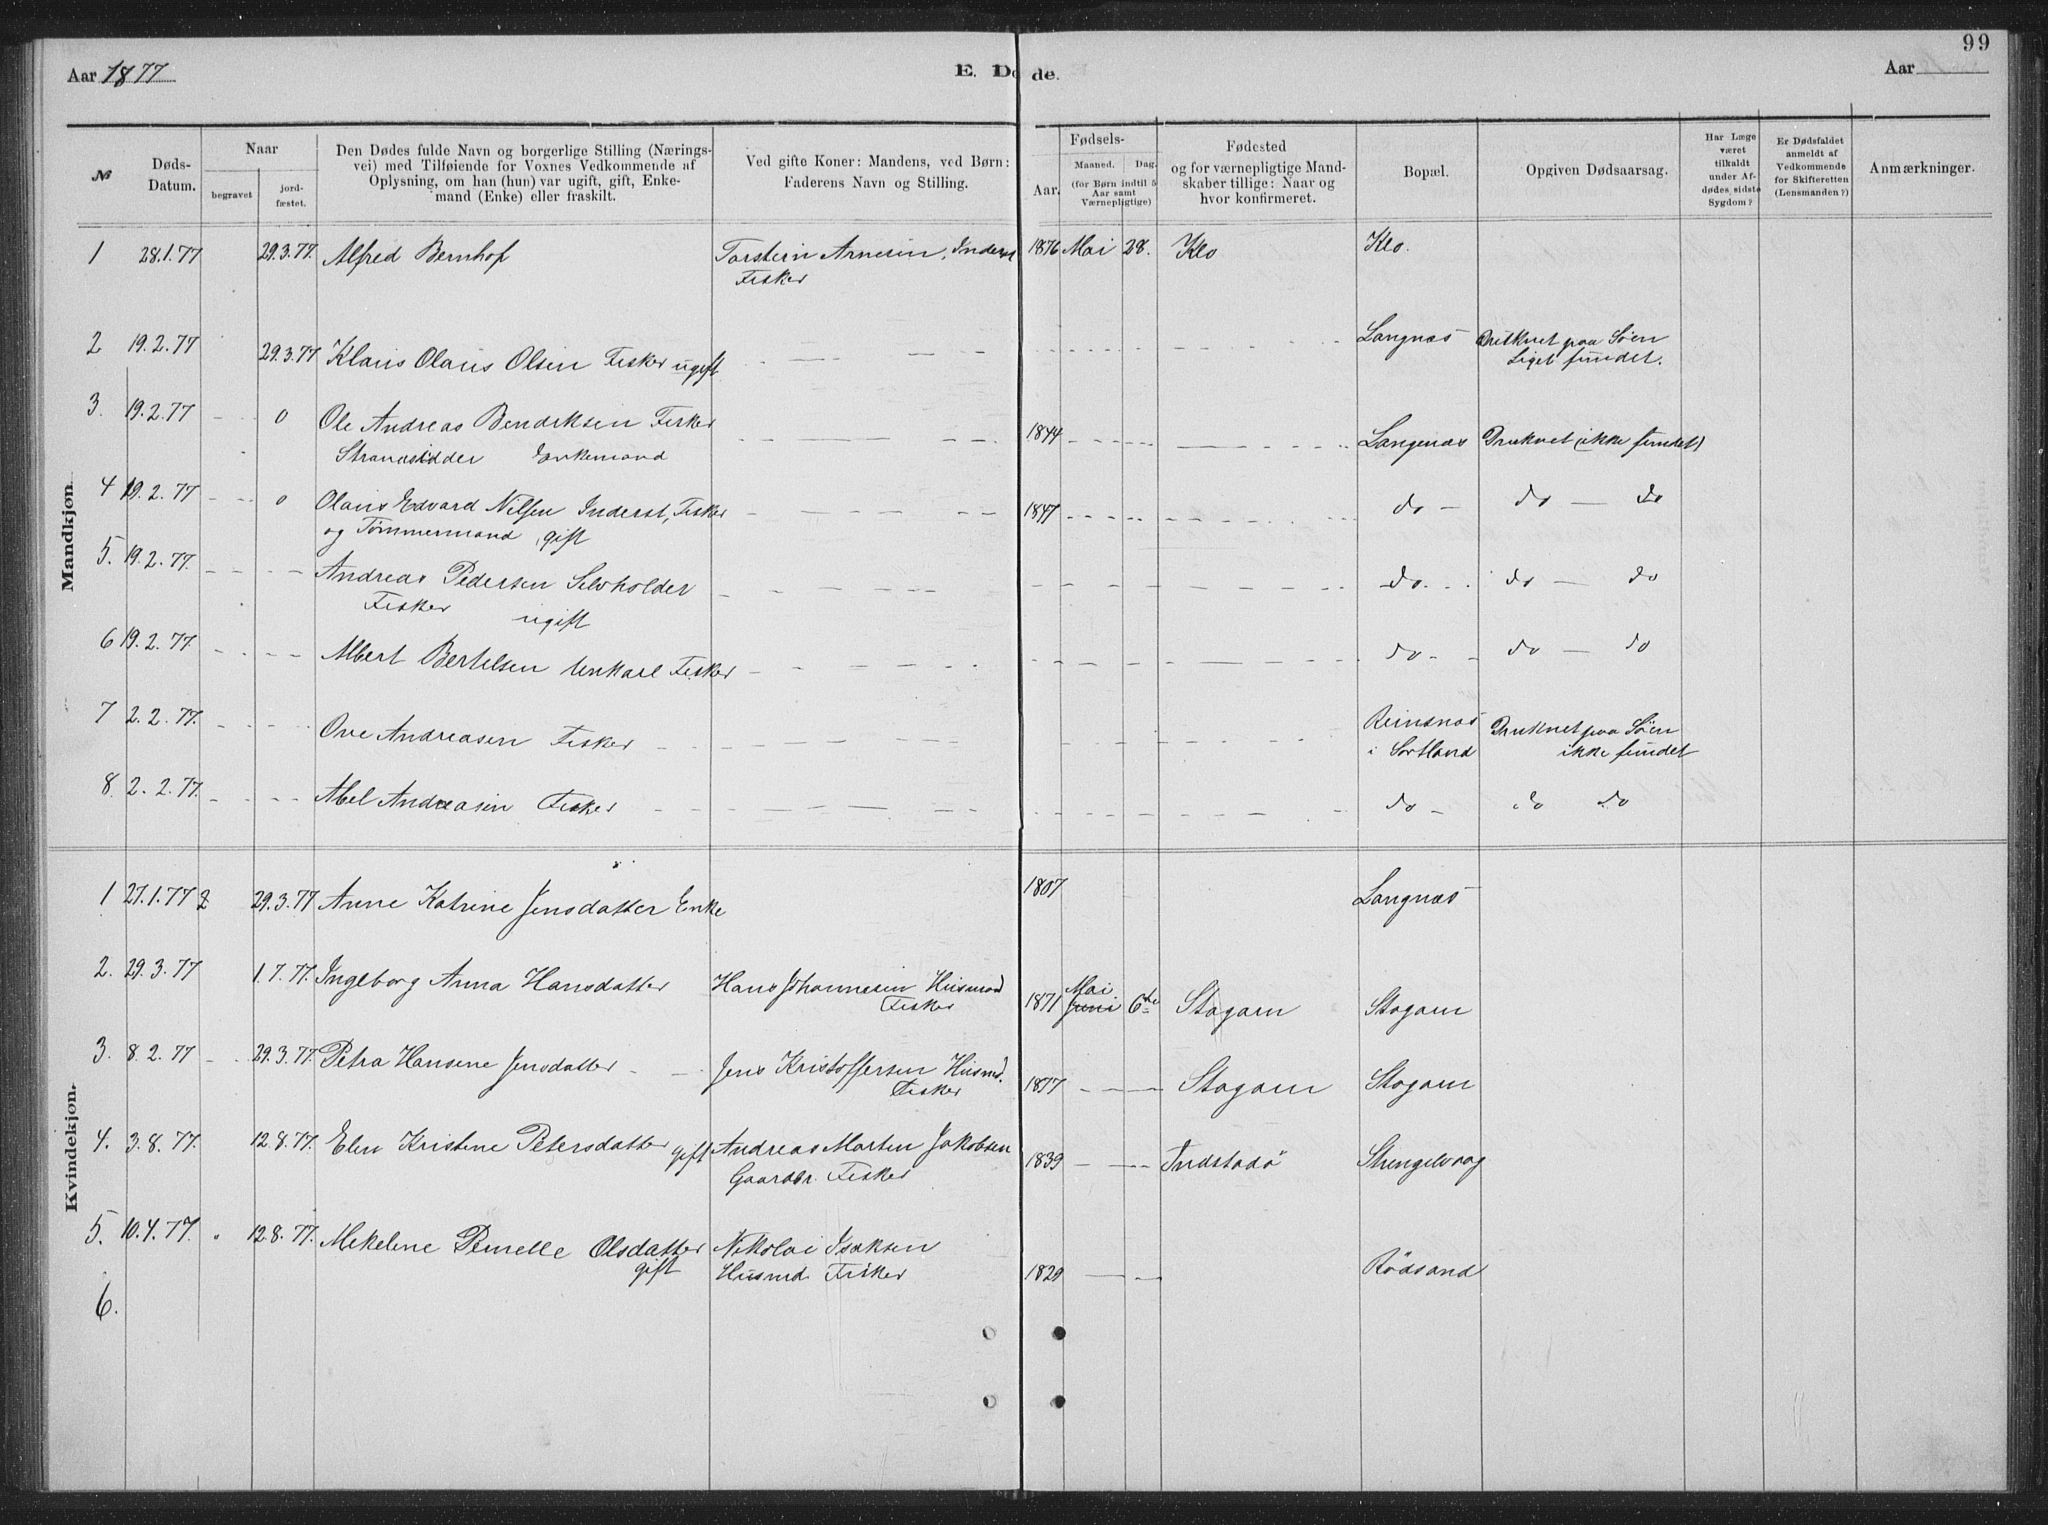 99
Aar 1877 E. Døde. Aar
№ Døds-Datum. Naar begravet jordfæstet. Den Dødes fulde Navn og borgerlige Stilling (Næringsvei) med Tilføiende for Voxnes Vedkommende af Oplysning, om han (hun) var ugift, gift, Enkemand (Enke) eller fraskilt. Ved gifte Koner: Mandens, ved Børn: Faderens Navn og Stilling. Fødsels- Aar. Maaned. Dag. (for Børn indtil 5 Aar samt Værnepligtige) Fødested og for værnepligtige Mandskaber tillige: Naar og hvor konfirmeret. Bopæl. Opgiven Dødsaarsag. Har Læge været tilkaldt under Afdødes sidste Sygdom? Er Dødsfaldet anmeldt af Vedkommende for Skifteretten (Lensmanden?) Anmærkninger.
Mandkjøn.
1 28.1.77 29.3.77. Alfred Bernhof Torstein Arnesen, Inderst 1876 Mai 28. Klo Klo.
Fisker
2 19.2.77 29.3.77 Klaus Olaus Olsen Fisker ugift Langnæs Druknet paa Søen
Liget fundet.
3. 19.2.77 0 Ole Andreas Bendiksen Fisker 1844 Langenæs Druknet (ikke fundet)
Strandsidder Enkemand
4 19.2.77 0 Olaus Edvard Nilsen Inderst, Fisker 1847 do do do
og Tømmermand, gift
5. 19.2.77. Andreas Pedersen Selvholder do do do
Fisker ugift
6 19.2.77. Albert Bertelsen Unkarl Fisker do do do
7 2.2.77. Ove Andreasen Fisker Reinsnæs Druknet paa Søen
i Sortland ikke fundet
8. 2.2.77. Abel Andreasen Fisker do do do
Kvindekjøn.
1 27.1.77 29.3.77 Anne Katrine Jensdatter Enke 1807 Langnæs
2. 29.3.77 1.7.77. Ingeborg Anna Hansdatter Hans Johannesen Husmand 1871 Mai Juni 6te Stogam Stogam
Fisker
3. 8.2.77 29.3.77. Petra Hansine Jensdatter Jens Kristoffersen Husmd. 1877 Stogam Stogam
Fisker
4. 3.8.77. 12.8.77. Elen Kristine Petersdatter gift Andreas Martin Jakobsen 1839 Indstadø Strengelvaag
Gaardbr. Fisker
5. 10.4.77. 12.8.77. Mekeline Pernelle Olsdatter Nikolai Isaksen
gift Husmd. Fisker 1829 Rødsand
6.